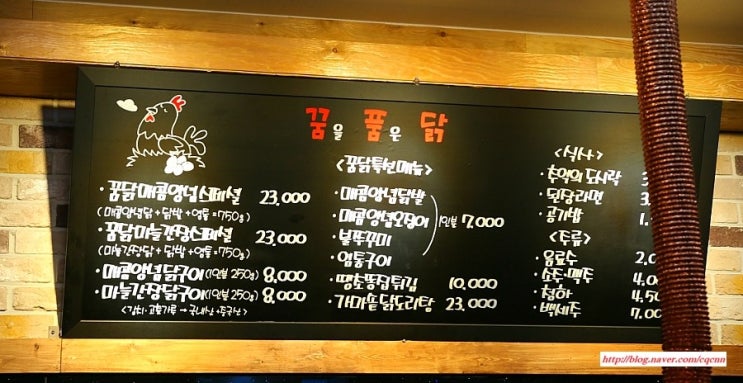 꿈을 품은 닭
· 꿈닭매콤양념스페셜 23,000
(매콤양념닭 + 닭발 + 염통 = 750g)
· 꿈닭마늘간장스페셜 23,000
(마늘간장닭 + 닭발 + 염통 = 750g)
· 매콤양념닭구이(1인분 250g) 8,000
· 마늘간장닭구이(1인분 250g) 8,000
<김치·고춧가루 → 국내산+중국산>
<꿈닭특선메뉴>
· 매콤양념닭발
· 매콤양념오징어 1인분 7,000
· 불쭈꾸미
· 염통구이
· 땡초똥집튀김 10,000
· 가마솥닭도리탕 23,000
<식사>
· 추억의 도시락
· 된장라면
· 공기밥
<주류>
· 음료수
· 소주·맥주
· 청하
· 백세주
http://blog.naver.com/cqcnn